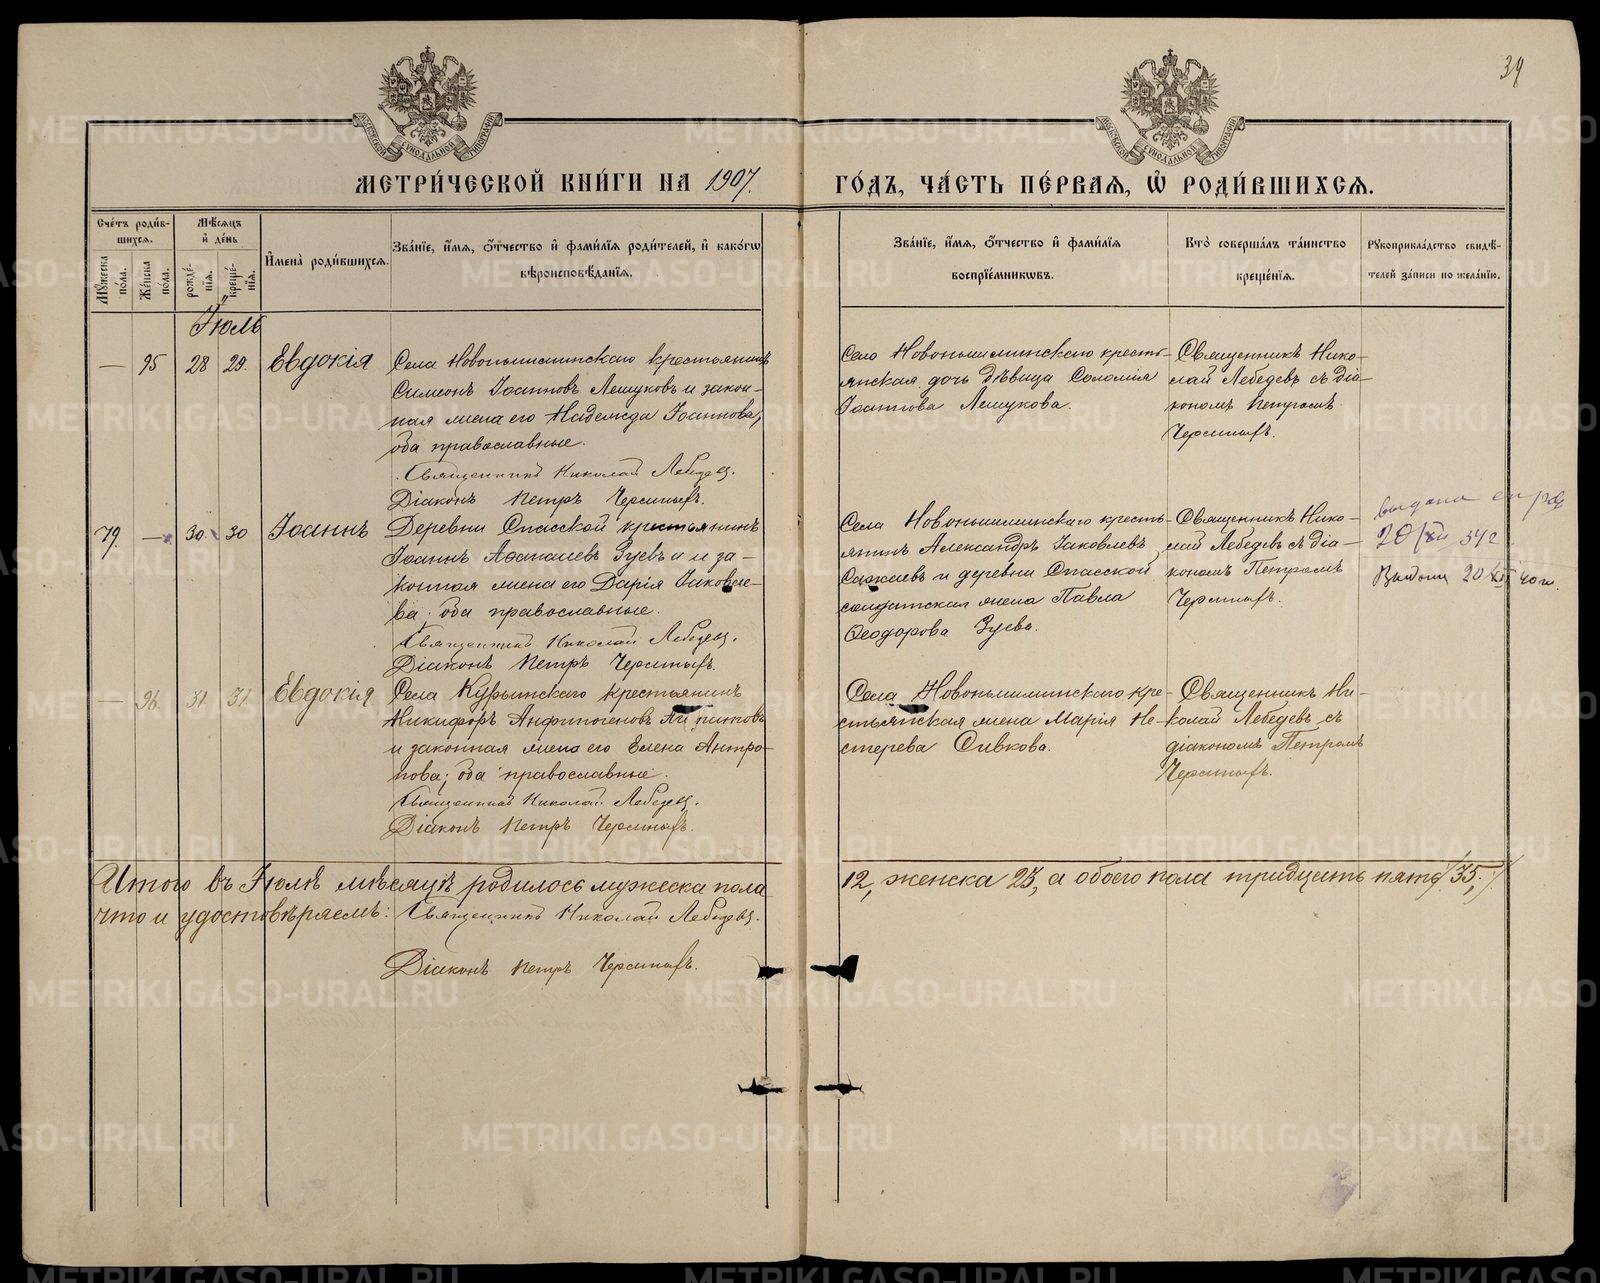 34
МЕТРИ́ЧЕСКОЙ КНИ́ГИ НА 1907.
ГО́ДЪ, ЧА́СТЬ ПЕ́РВАЯ, Ѡ҆ РОДИ́ВШИХСЯ.
Сче́тъ роди́в-
шихся.
Мꙋ́жеска по́ла.
Же́нска по́ла.
Мѣ́сяцъ
и҆ де́нь
рожде́-
нїя.
креще́-
нїя.
И҆мена̀ роди́вшихся.
Зва́нїе, и҆́мя, ѻ҆́тчество и҆ фами́лїя роди́телей, и҆ како́гѡ
вѣроисповѣ́данїя.
Зва́нїе, и҆́мя, ѻ҆́тчество и҆ фами́лїя
воспрїе́мникѡвъ.
Кто̀ соверша́лъ та́инство
креще́нїя.
Рꙋкоприкла́дство свидѣ́-
телей за́писи по жела́нїю.
Іюль
— 95 28 29. Евдокія
Села Новопышминскаго крестьянинъ
Симеонъ Іоанновъ Лешуковъ и закон-
ная жена его Надежда Іоаннова,
оба православные.
Священникъ Николай Лебедевъ.
Діаконъ Петръ
Село Новопышминскаго кресть-
янская дочь дѣвица Соломія
Іоаннова Лешукова.
Священникъ Нико-
лай Лебедевъ съ діа-
кономъ Петромъ
79. — 30. 30 Іоаннъ
Деревни Спасской крестьянинъ
Іоаннъ Аѳанасіевъ Зуевъ и за-
конная жена его Дарія Іаковле-
ва; оба православные.
Священникъ Николай Лебедевъ.
Діаконъ Петръ
Села Новопышминскаго кресть-
янинъ Александръ Іаковлевъ
и деревни Спасской
солдатская жена Павла
Ѳеодорова Зуева.
Священникъ Нико-
лай Лебедевъ съ діа-
кономъ Петромъ
выдана
20/XII
20/XI 40 г.
— 96. 31. 31. Евдокія
Села Курьинскаго крестьянинъ
Никифоръ Анфиногеновъ
и законная жена его Елена Антро-
пова; оба православные.
Священникъ Николай Лебедевъ.
Діаконъ Петръ
Села Новопышминскаго кре-
стьянская жена Марія Не-
стерева Сивкова.
Священникъ Ни-
колай Лебедевъ съ
діакономъ Петромъ
Итого въ Іюлѣ мѣсяцѣ родилось мужеска пола
12, женска 23, а обоего пола тридцать пять /35./
что и удостовѣряемъ: Священникъ Николай Лебедевъ.
Діаконъ Петръ
METRIKI.GASO-URAL.RU